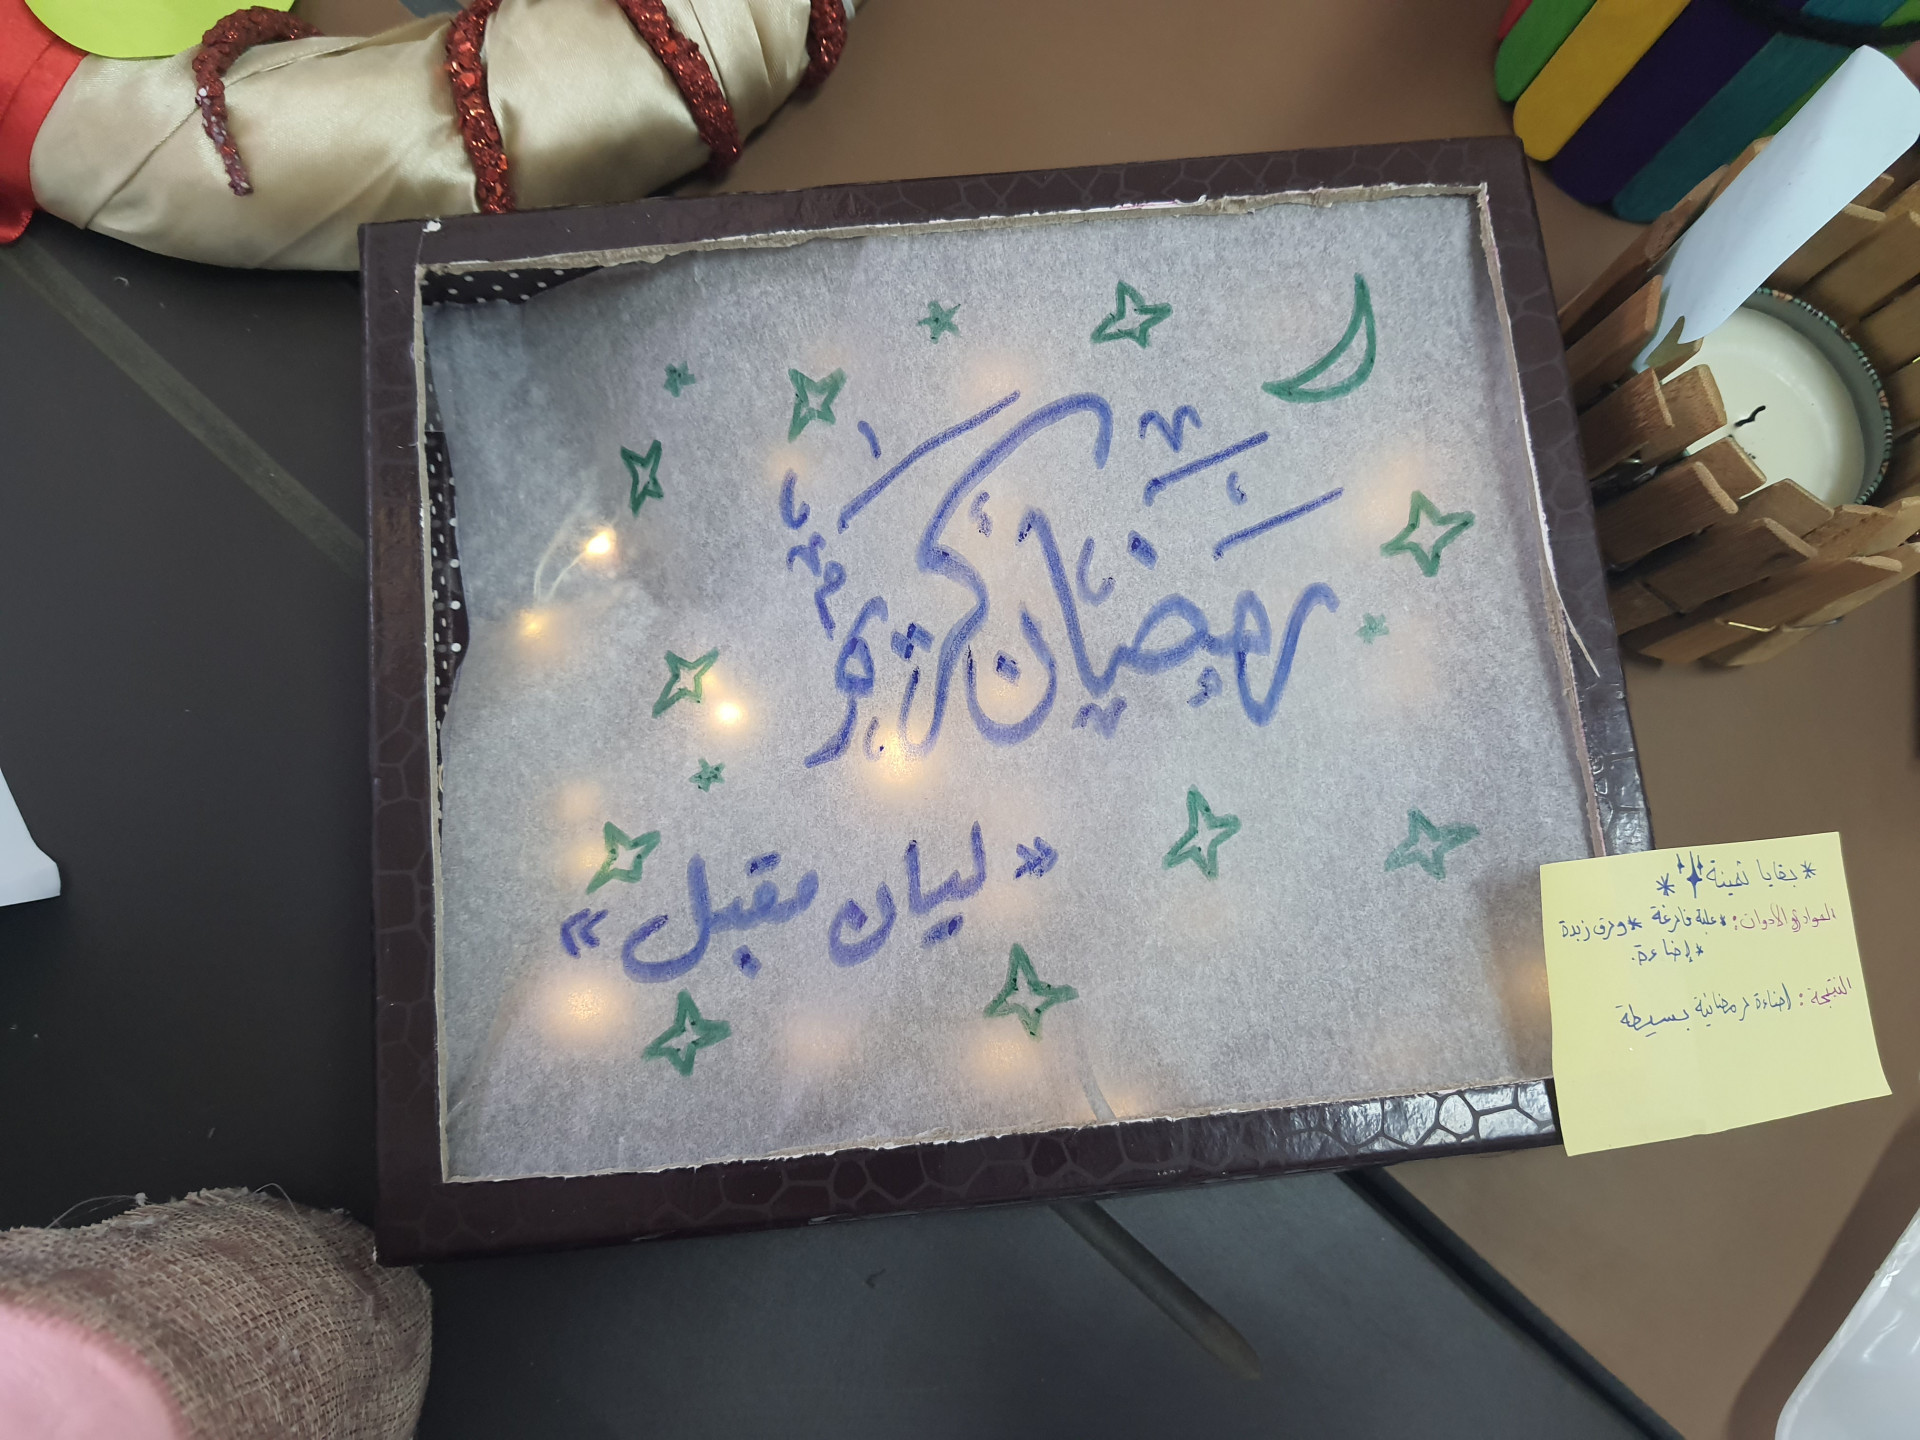 رمضان كريم
« ليان مقبل »
* بقايا ثمينة *
المواد و الأدوات: * علبة فارغة * ورق زبدة
* إضاءة.
النتيجة: إضاءة رمضانية بسيطة